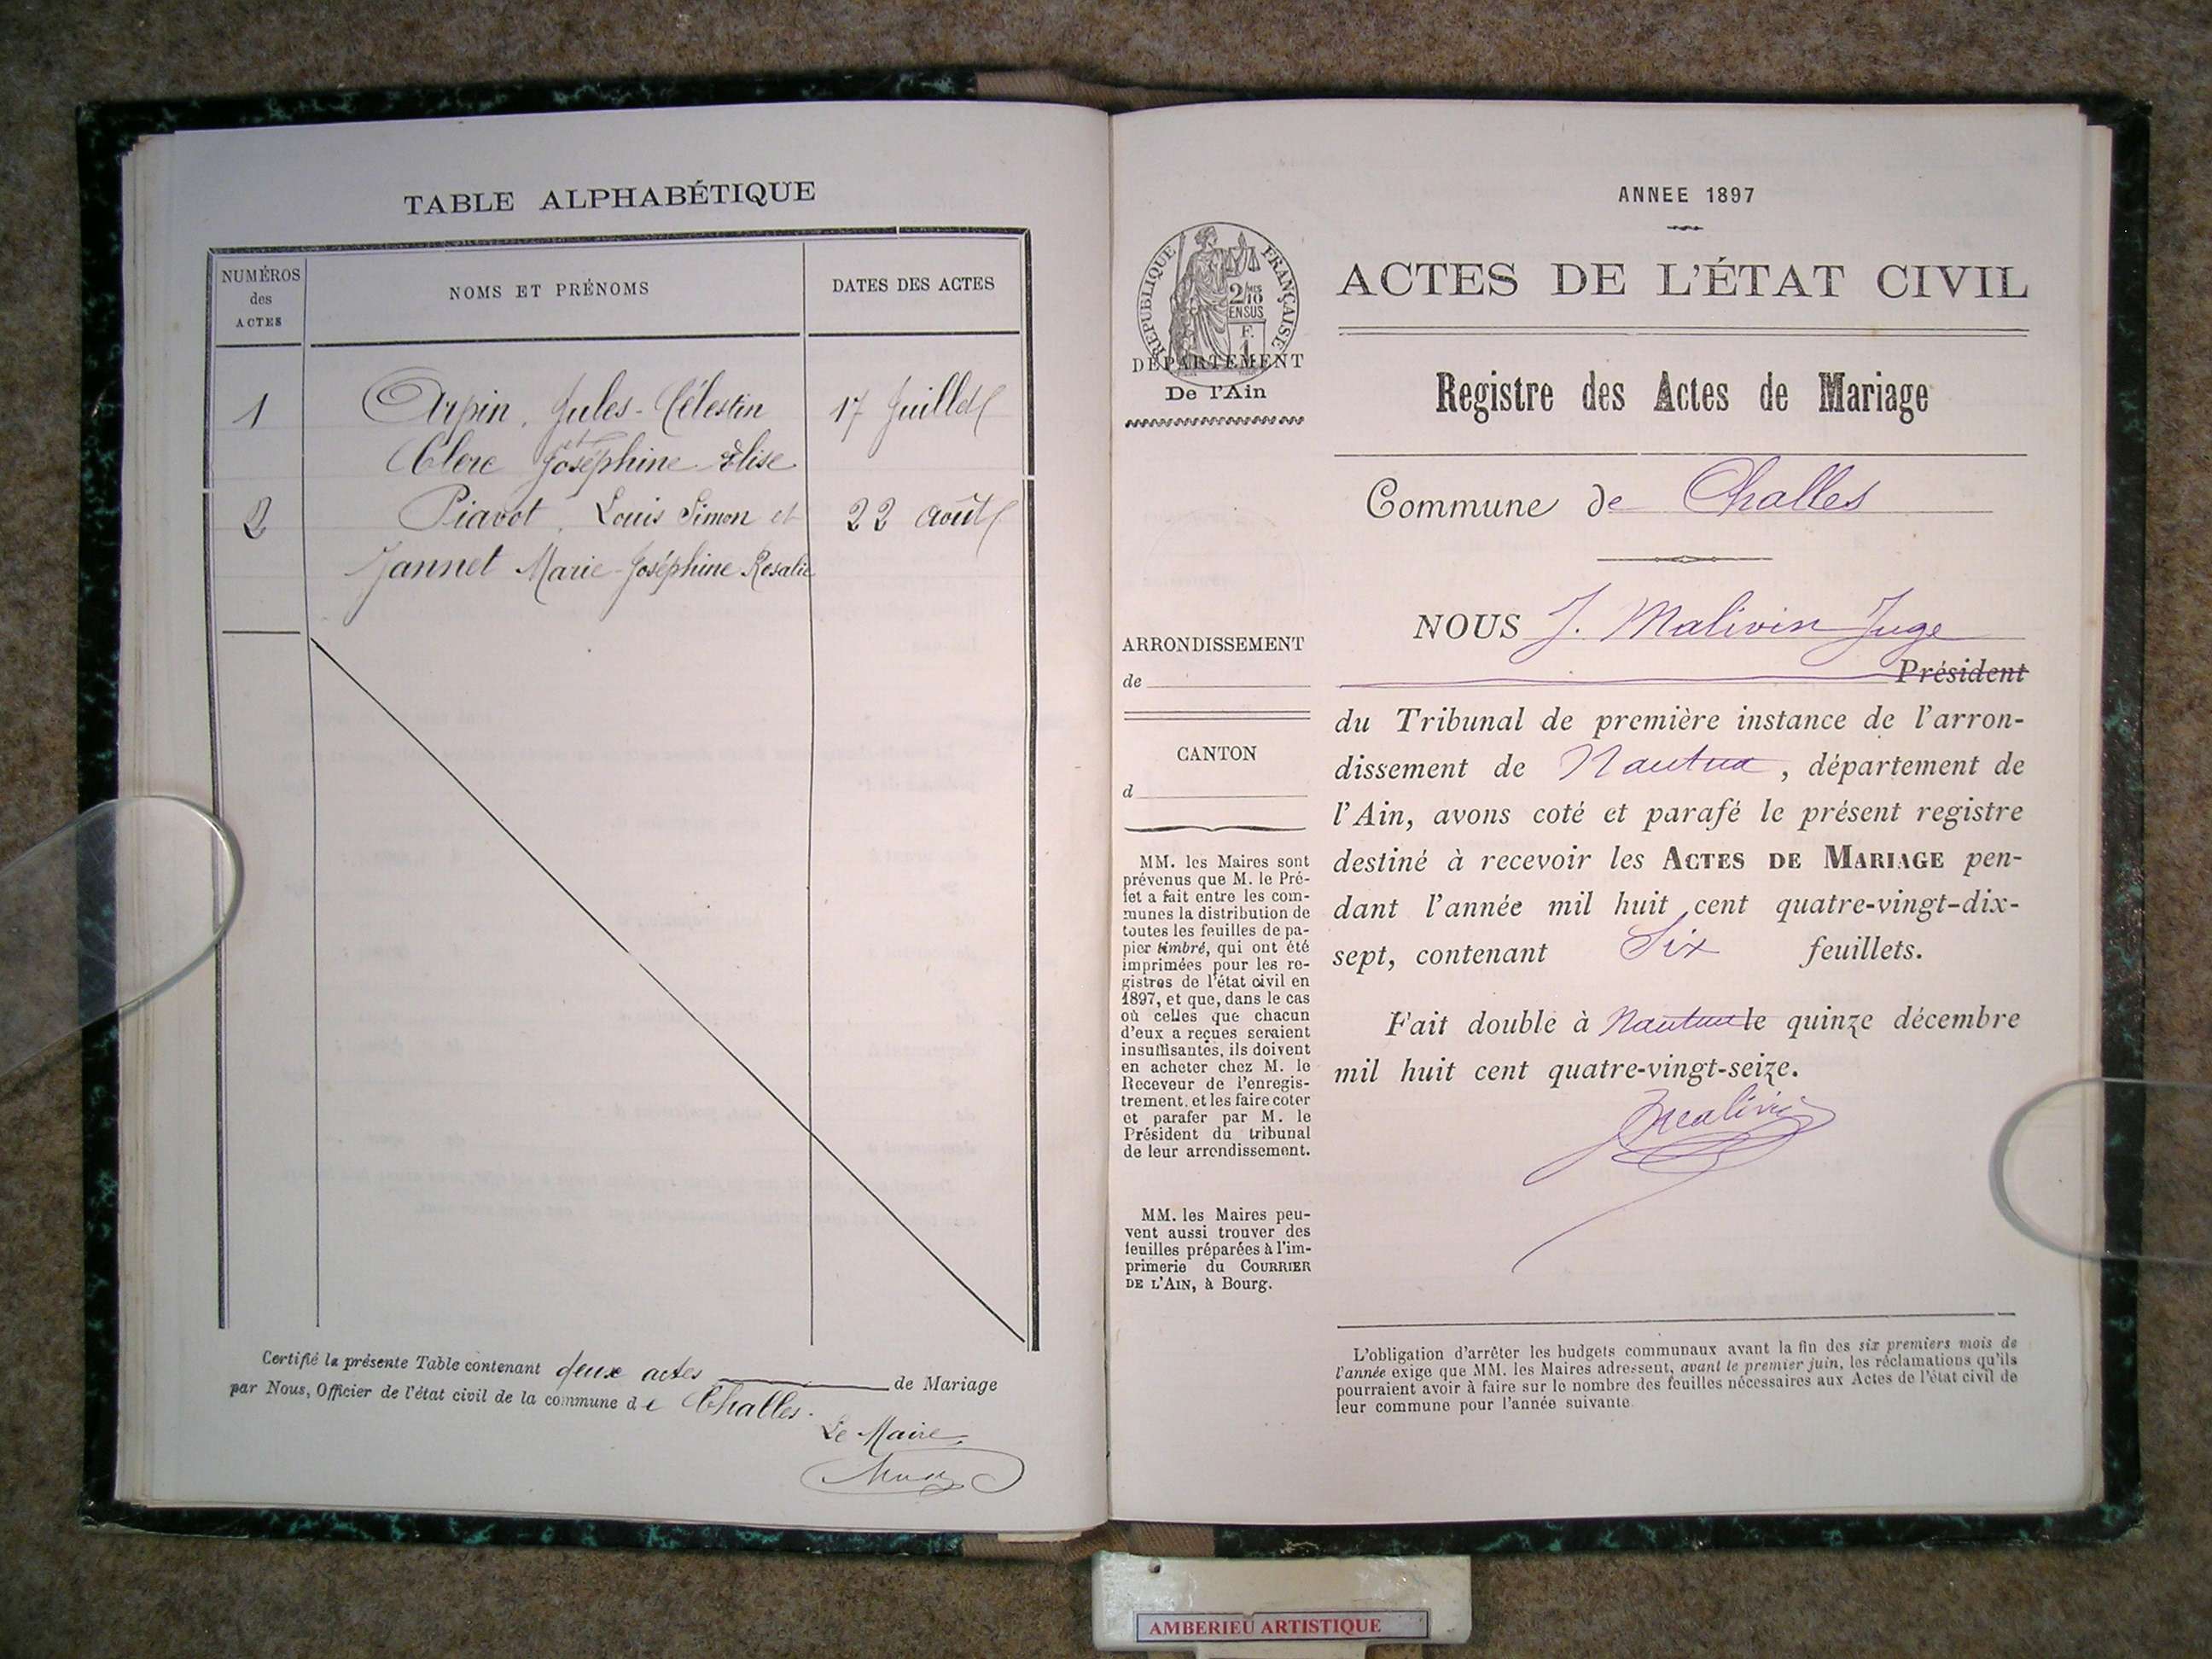 TABLE ALPHABÉTIQUE
NUMÉROS
des
ACTES
NOMS ET PRÉNOMS
DATES DES ACTES
1 Arpin, Jules-Célestin 17 Juillet
et
Clerc Joséphine Élise
2 Piavot, Louis Simon et 22 Août
Jannet Marie-Joséphine Rosalie
Certifié la présente Table contenant deux actes de Mariage
par Nous, Officier de l'état civil de la commune de Challes.
Le Maire,
ANNEE 1897
RÉPUBLIQUE FRANÇAISE
2/10
EN SUS
F.
1
DÉPARTEMENT
De l'Ain
ARRONDISSEMENT
de
CANTON
d
MM. les Maires sont
prévenus que M. le Pré-
fet a fait entre les com-
munes la distribution de
toutes les feuilles de pa-
pier timbré, qui ont été
imprimées pour les re-
gistres de l'état civil en
1897, et que, dans le cas
où celles que chacun
d'eux a reçues seraient
insuffisantes, ils doivent
en acheter chez M. le
Receveur de l'enregis-
trement, et les faire coter
et parafer par M. le
Président du tribunal
de leur arrondissement.
MM. les Maires peu-
vent aussi trouver des
feuilles préparées à l'im-
primerie du COURRIER
DE L'AIN, à Bourg.
ACTES DE L'ÉTAT CIVIL
Registre des Actes de Mariage
Commune de Challes
NOUS J. Malivin Juge
Président
du Tribunal de première instance de l'arron-
dissement de Nantua, département de
l'Ain, avons coté et parafé le présent registre
destiné à recevoir les ACTES DE MARIAGE pen-
dant l'année mil huit cent quatre-vingt-dix-
sept, contenant Six feuillets.
Fait double à Nantua le quinze décembre
mil huit cent quatre-vingt-seize.
Malivin
L'obligation d'arrêter les budgets communaux avant la fin des six premiers mois de
l'année exige que MM. les Maires adressent, avant le premier juin, les réclamations qu'ils
pourraient avoir à faire sur le nombre des feuilles nécessaires aux Actes de l'état civil de
leur commune pour l'année suivante.
AMBERIEU ARTISTIQUE